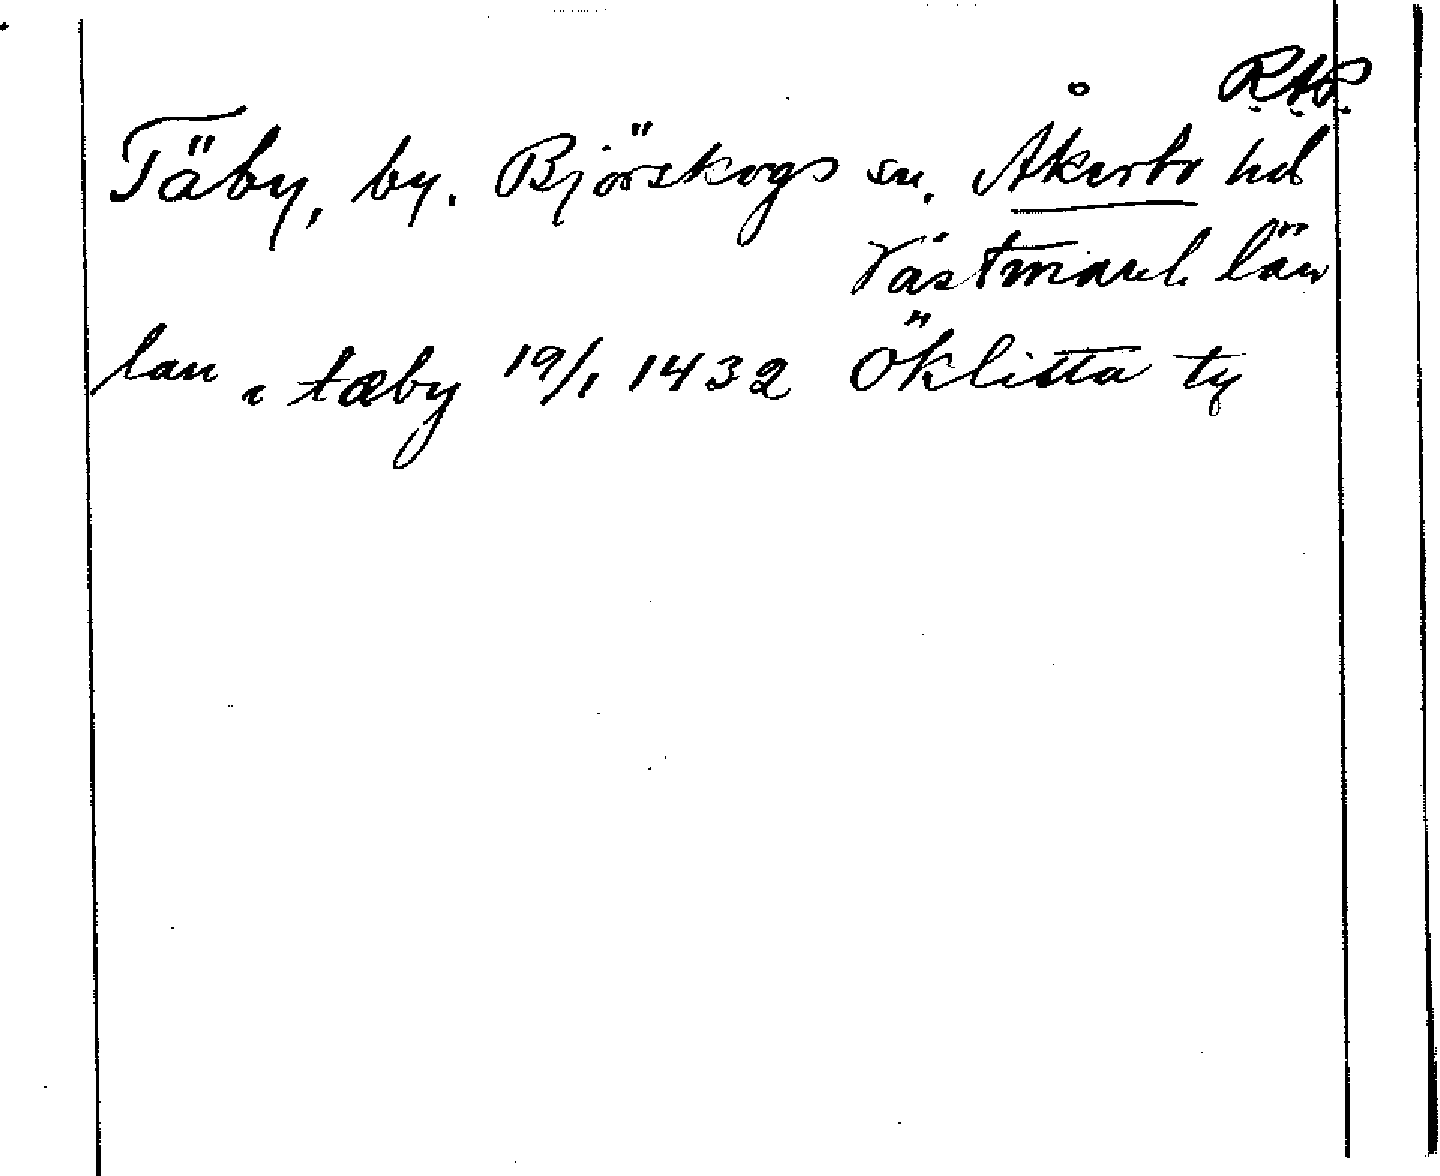 RAP
Täby, by. Björskogs sn. Åkerbo hd
Västmanl. län
lau i tæby 19/1 1432 Öklista ty